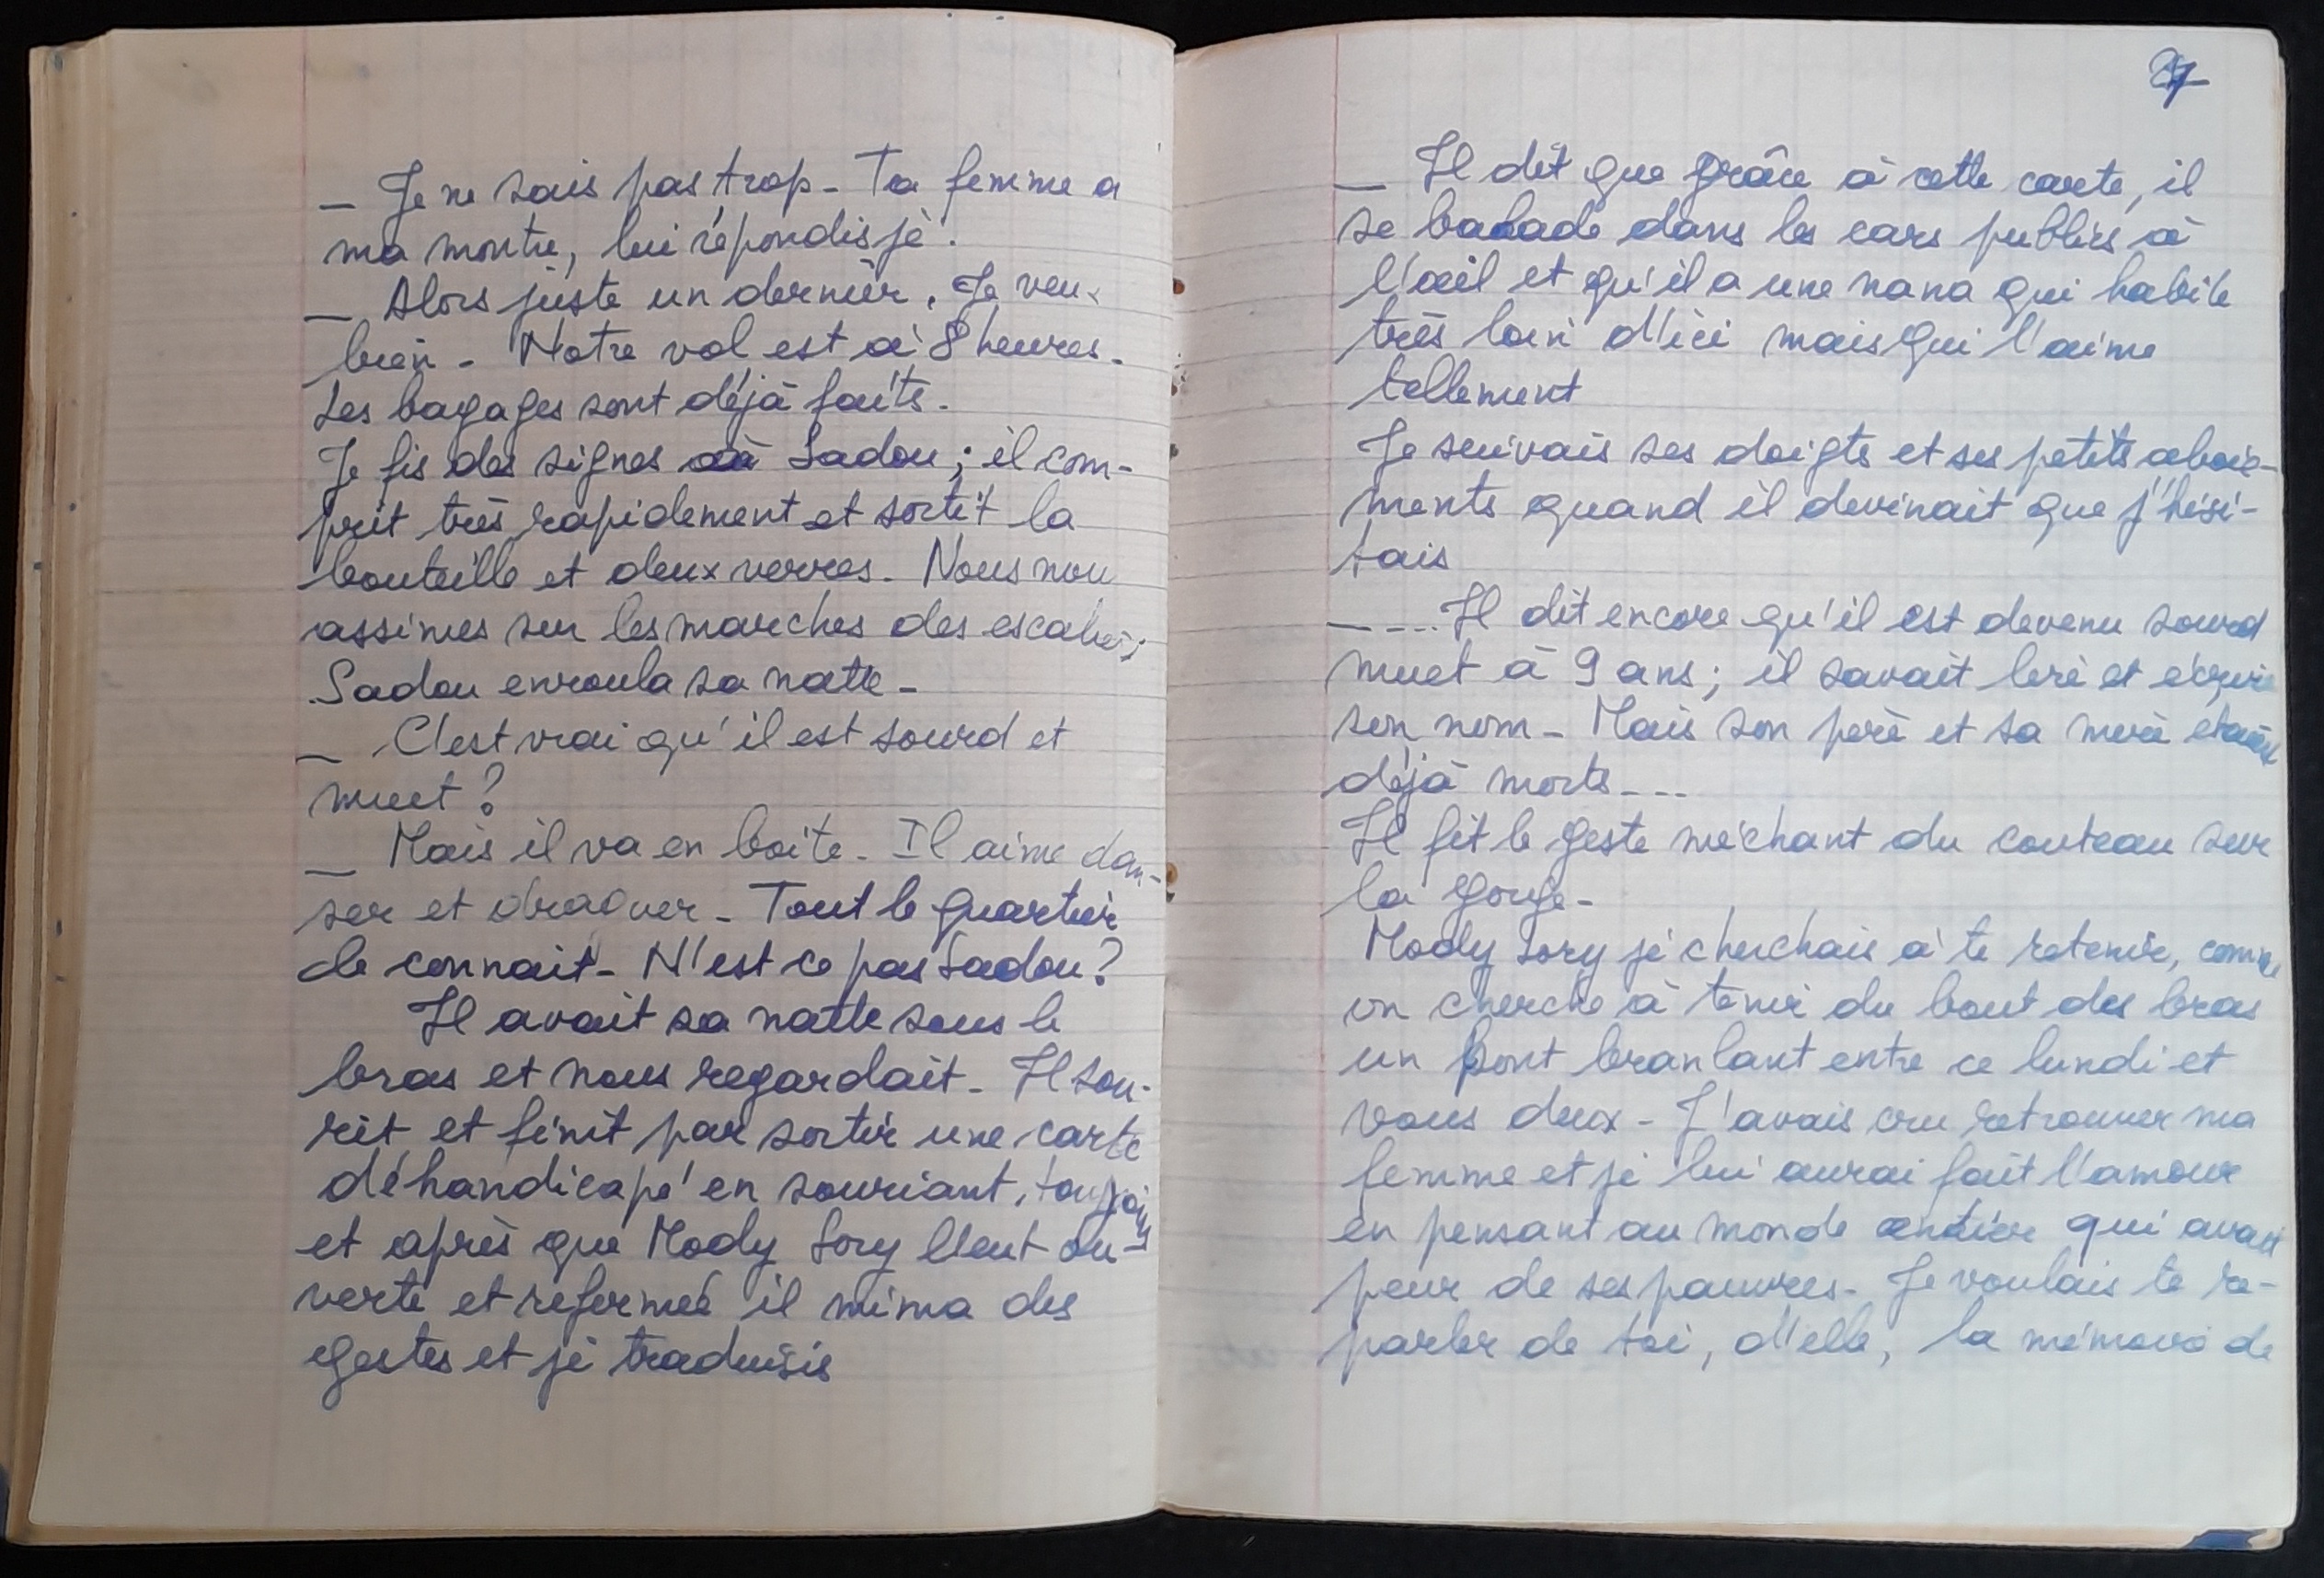 _ Je ne sais pas trop - Ta femme a
ma montre, lui répondis je.
_ Alors juste un dernier. Je veux
bien - Notre vol est à 8 heures -
Les bagages sont déjà faits -
Je fis des signes à Sadou ; il com-
prit très rapidement et sortit la
bouteille et deux verres - Nous nous
assimes sur les marches des escaliers ;
Sadou enroula sa natte -
_ C'est vrai qu'il est sourd et
muet ?
_ Mais il va en boîte - Il aime dan-
ser et draguer - Tout le quartier
le connait - N'est ce pas Sadou ?
Il avait sa natte sous le
bras et nous regardait - Il sou-
rit et finit par sortir une carte
d'handicapé en souriant, toujours
et après que Mody Sory l'eut ou-
verte et refermée il mima des
gestes et je traduisis
27
_ Il dit que grâce à cette carte, il
se balade dans les cars publics à
l'œil et qu'il a une nana qui habite
très loin d'ici mais qui l'aime
tellement
Je suivais ses doigts et ses petits aboie-
ments quand il devinait que j'hési-
tais
_ --- Il dit encore qu'il est devenu sourd
muet à 9 ans ; il savait lire et écrire
son nom - Mais son père et sa mère étaient
déjà morts ---
Il fit le geste méchant du couteau sur
la gorge -
Mody Sory je cherchais à te retenir, comme
on cherche à tenir du bout des bras
un pont branlant entre ce lundi et
vous deux - J'avais cru retrouver ma
femme et je lui aurai fait l'amour
en pensant au monde entier qui avait
peur de ses pauvres - Je voulais te re-
parler de toi, d'elle, la mémoire de